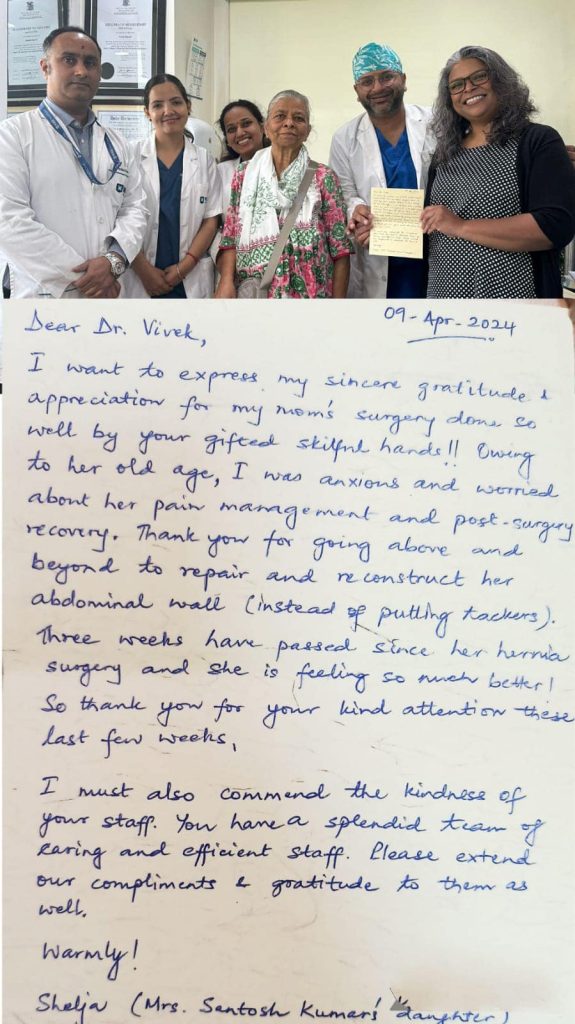 09-Apr-2024
Dear Dr. Vivek,
I want to express my sincere gratitude &
appreciation for my mom's surgery done so
well by your gifted skilful hands!! Owing
to her old age, I was anxious and worried
about her pain management and post-surgery
recovery. Thank you for going above and
beyond to repair and reconstruct her
abdominal wall (instead of putting tackers).
Three weeks have passed since her hernia
surgery and she is feeling so much better!
So thank you for your kind attention these
last few weeks,
I must also commend the kindness of
your staff. You have a splendid team of
caring and efficient staff. Please extend
our compliments & gratitude to them as
well.
Warmly!
Shelja (Mrs. Santosh Kumar's daughter)